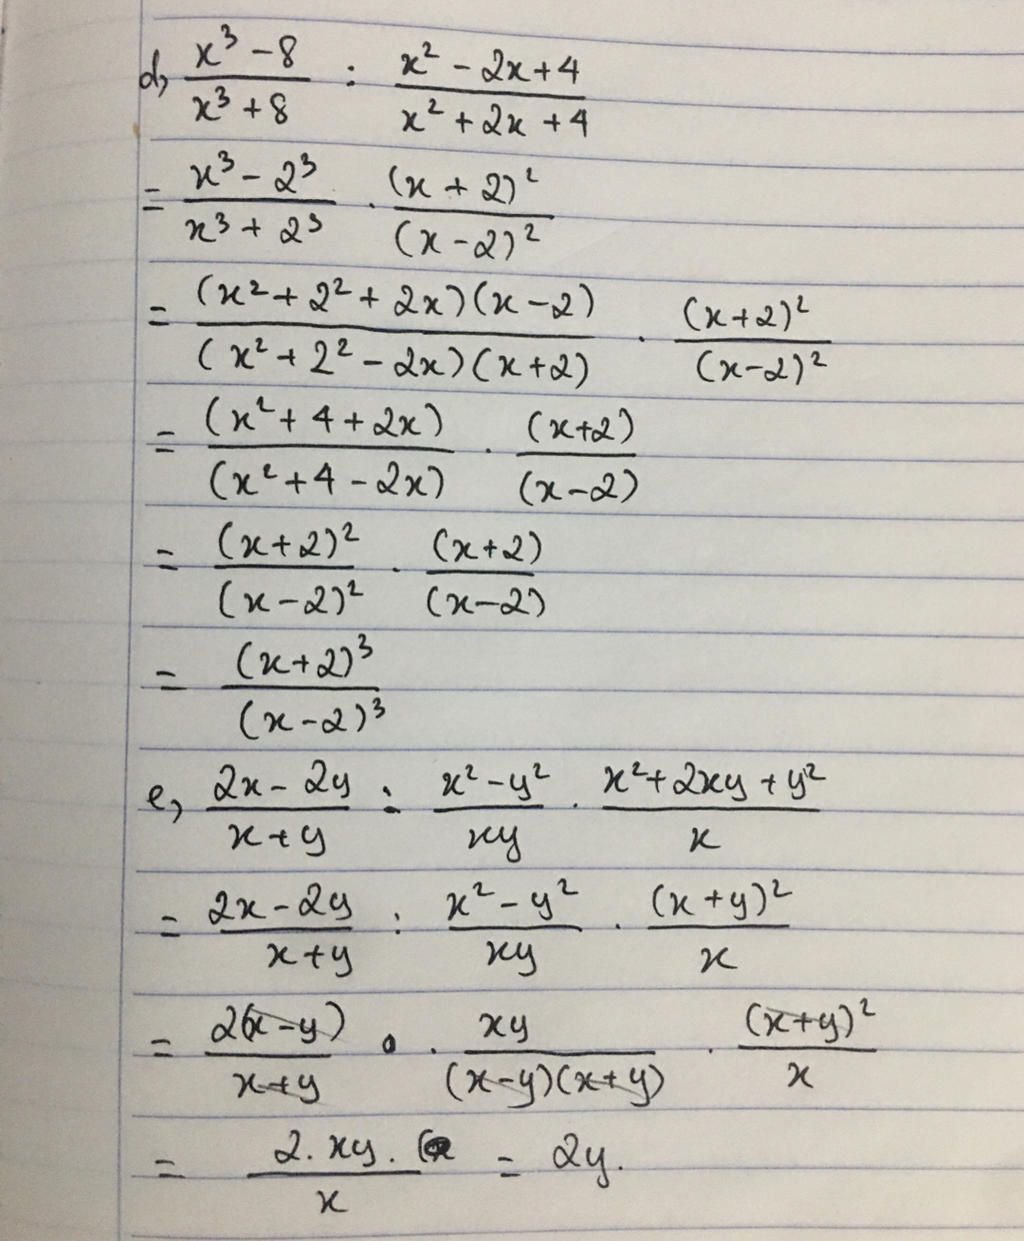 d, \frac{x³ - 8}{x³ + 8} : \frac{x² - 2x + 4}{x² + 2x + 4}
= \frac{x³ - 2³}{x³ + 2³} . \frac{(x + 2)²}{(x - 2)²}
= \frac{(x² + 2² + 2x)(x - 2)}{(x² + 2² - 2x)(x + 2)} . \frac{(x + 2)²}{(x - 2)²}
= \frac{(x² + 4 + 2x)}{(x² + 4 - 2x)} . \frac{(x + 2)}{(x - 2)}
= \frac{(x + 2)²}{(x - 2)²} . \frac{(x + 2)}{(x - 2)}
= \frac{(x + 2)³}{(x - 2)³}
e, \frac{2x - 2y}{x + y} : \frac{x² - y²}{xy} . \frac{x² + 2xy + y²}{x}
= \frac{2x - 2y}{x + y} : \frac{x² - y²}{xy} . \frac{(x + y)²}{x}
= \frac{2(x - y)}{x + y} . \frac{xy}{(x - y)(x + y)} . \frac{(x + y)²}{x}
= \frac{2. xy.}{x} = 2y.